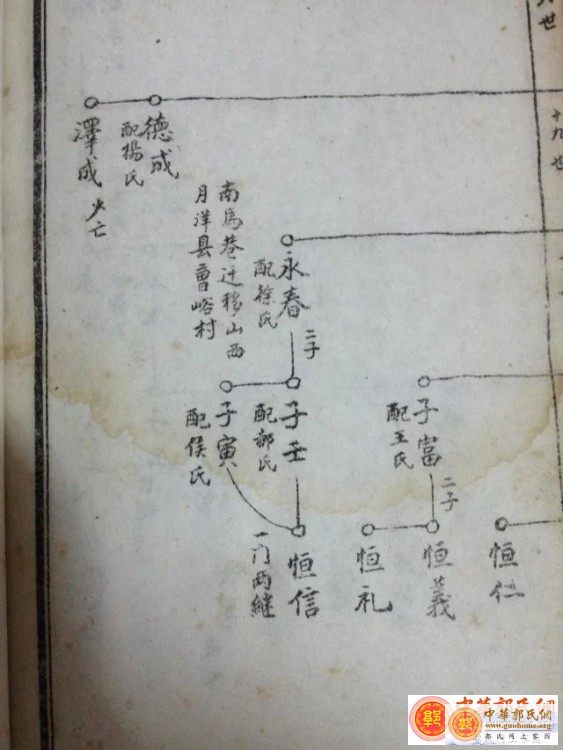 世
十九世
德成
配楊氏
澤成
少亡
永春
配徐氏
二子
南馬巷迁移山西
月洋县曹峪村
子富
配王氏
二子
子壬
配郝氏
子寅
配侯氏
恒仁
恒義
恒礼
恒信
一门両継
中華郭氏網
www.guohome.org
郭氏网上家园